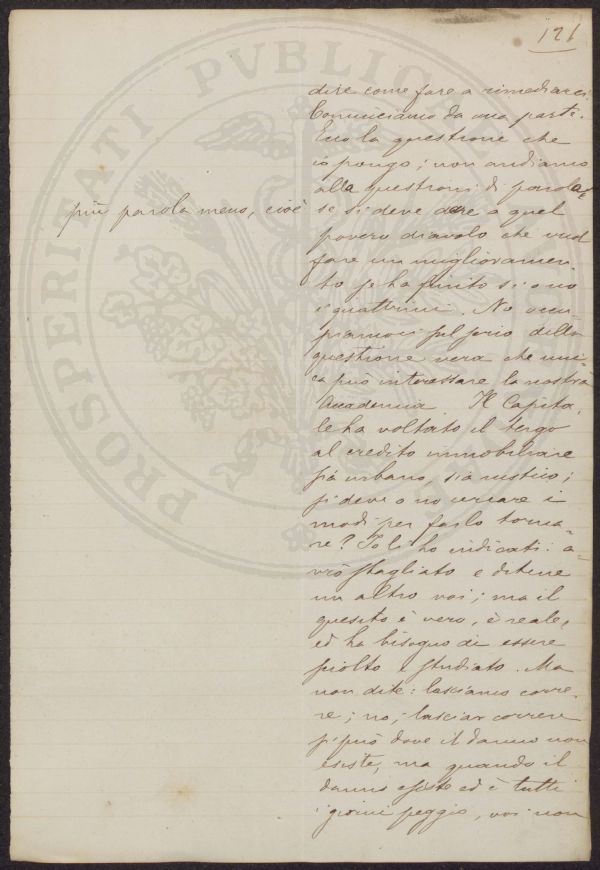 121
dire come fare a rimediarci.
Cominciamo da una parte.
Ecco la questione che
io pongo; non andiamo
alla questioni di parola
più parola meno, cioè
se si deve dare a quel
povero diavolo che vuol
fare un miglioramen
to se ha finito si o no
i quattrini. No occu
piamoci sul serio della
questione vera che uni
ca può interessare la nostra
Accademia. Il Capita
le ha voltato il tergo
al credito immobiliare
sia urbano, sia rustico;
si deve o no cercare i
modi per farlo torna
re? Io li ho indicati: a-
vrò sbagliato e ditene
un altro voi; ma il
quesito è vero, è reale,
ed ha bisogno di essere
sciolto e studiato. Ma
non dite: lasciamo corre-
re; no, lasciar correre
si può dove il danno non
esiste, ma quando il
danno esiste ed è tutti
i giorni peggio, voi non
PROSPERITATI PVBLICAE